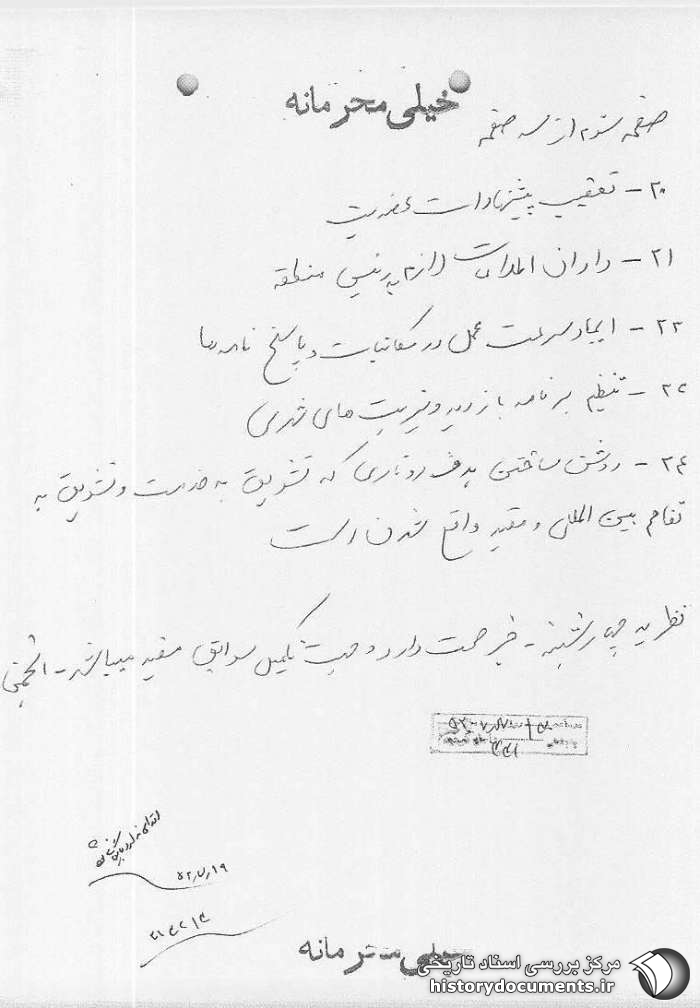 خیلی محرمانه
صفحه سوم از سه صفحه
۲۰- تعقیب پیشنهادات عضویت
۲۱- دادن اطلاعات لازم به رئیس منطقه
۲۲- ایجاد سرعت عمل در مکاتبات و پاسخ نامه‌ها
۲۳- تنظیم برنامه بازدید و فیزیت های شهری
۲۴- روشن ساختن هدف روتاری که تشویق به خدمت و تشویق به
تفاهم بین المللی و مفید واقع شدن است
نظریه چهارشنبه - خبر صحت دارد و جهت تکمیل سوابق مفید میباشد -
۴۴۱
۵۲/۷/۱۹
خیلی محرمانه
مرکز بررسی اسناد تاریخی
historydocuments.ir